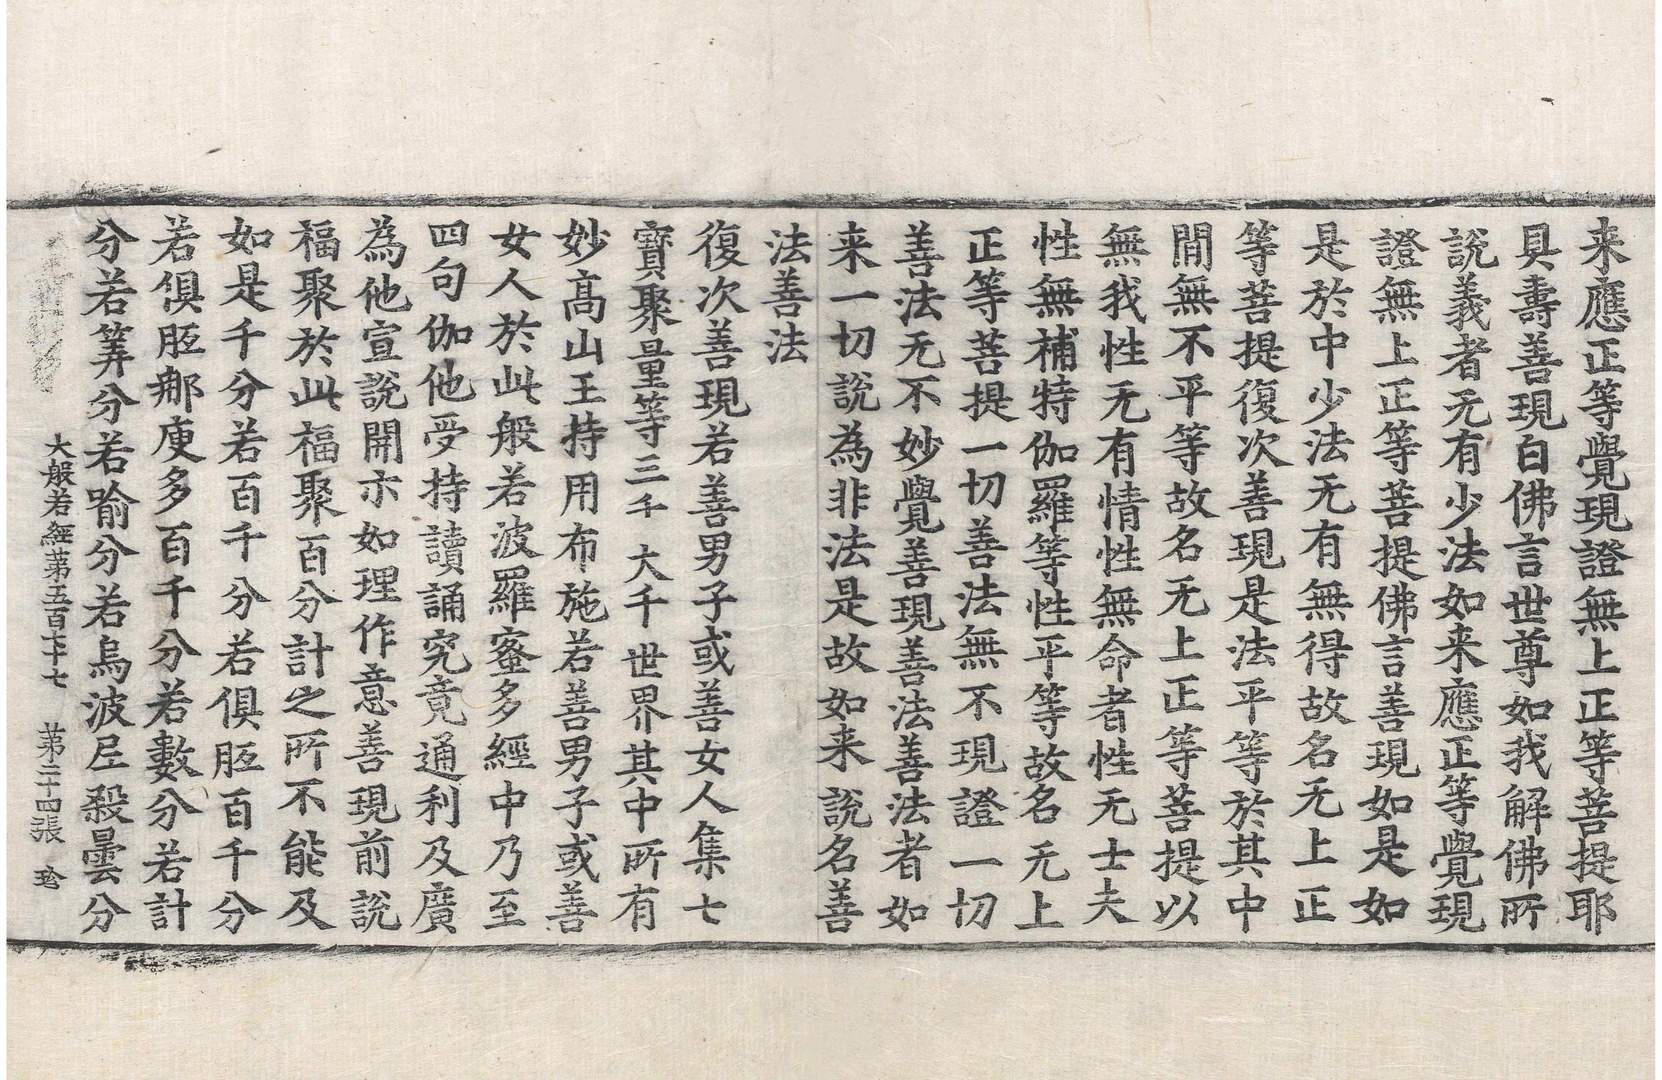 来應正等覺現證無上正等菩提耶
具壽善現白佛言世尊如我解佛所
說義者无有少法如来應正等覺現
證無上正等菩提佛言善現如是如
是於中少法无有無得故名无上正
等菩提復次善現是法平等於其中
間無不平等故名无上正等菩提以
無我性无有情性無命者性无士夫
性無補特伽羅等性平等故名无上
正等菩提一切善法無不現證一切
善法无不妙覺善現善法善法者如
来一切說為非法是故如来說名善
法善法
復次善現若善男子或善女人集七
寶聚量等三千大千世界其中所有
妙高山王持用布施若善男子或善
女人於此般若波羅蜜多經中乃至
四句伽他受持讀誦究竟通利及廣
為他宣說開示如理作意善現前說
福聚於此福聚百分計之所不能及
如是千分若百千分若俱胝百千分
若俱胝那庾多百千分若數分若計
分若筭分若喻分若烏波尼殺曇分
大般若經第五百七十七 第二十四張 珍